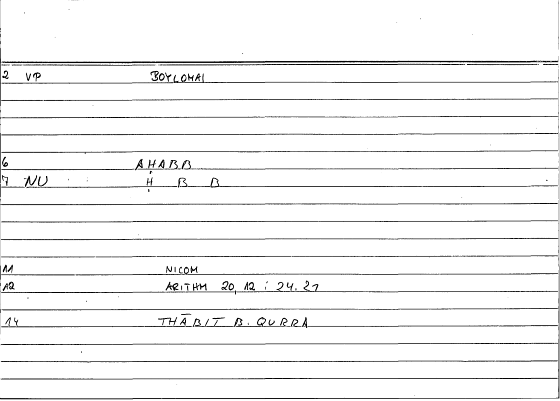 2 VP BOYLOMAI
6 AḤABB
7 NU Ḥ B B
11 NICOM
12 ARITHM 20, 12 : 24. 21
14 THĀBIT B. QURRA